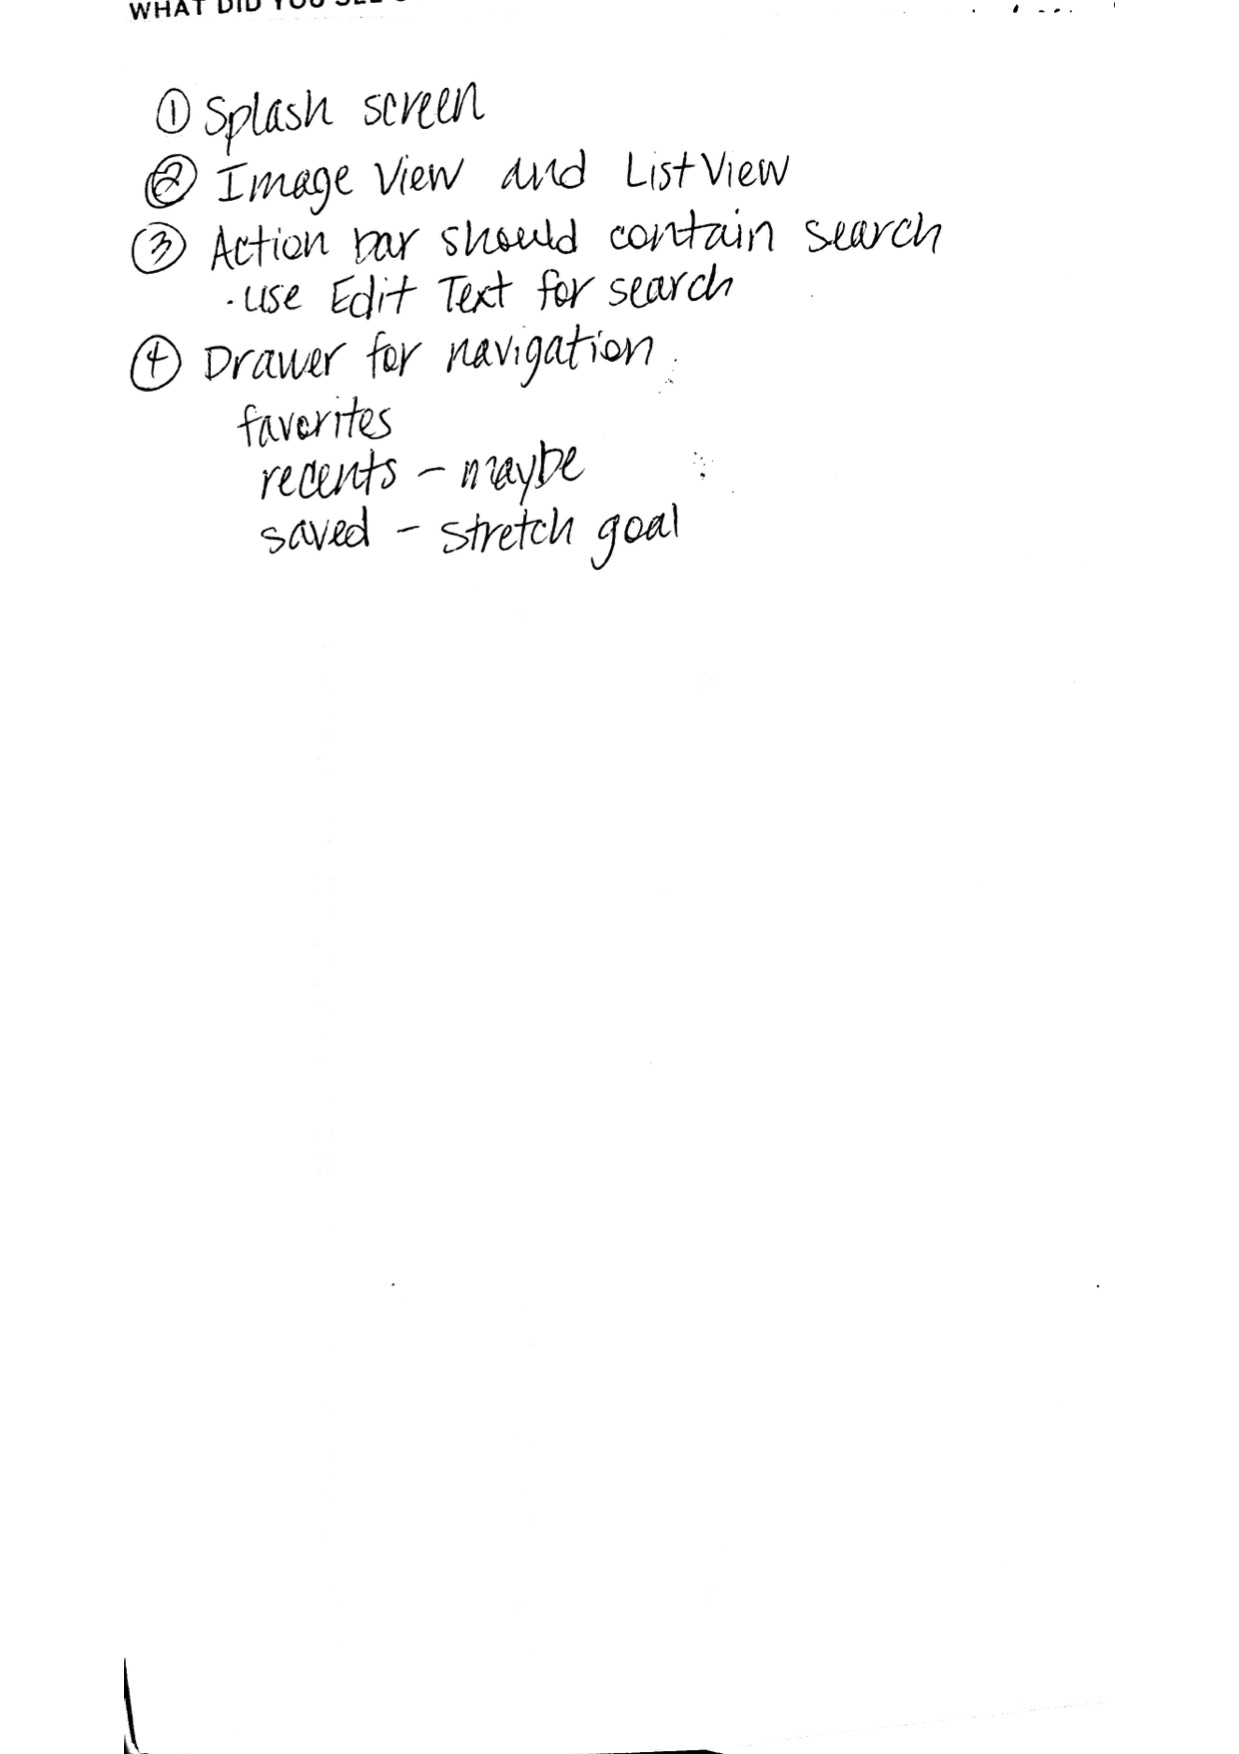 WHAT DID YOU SEE
① Splash screen
② Image View and ListView
③ Action bar should contain search
· use Edit Text for search
④ Drawer for navigation
favorites
recents – maybe
saved – stretch goal